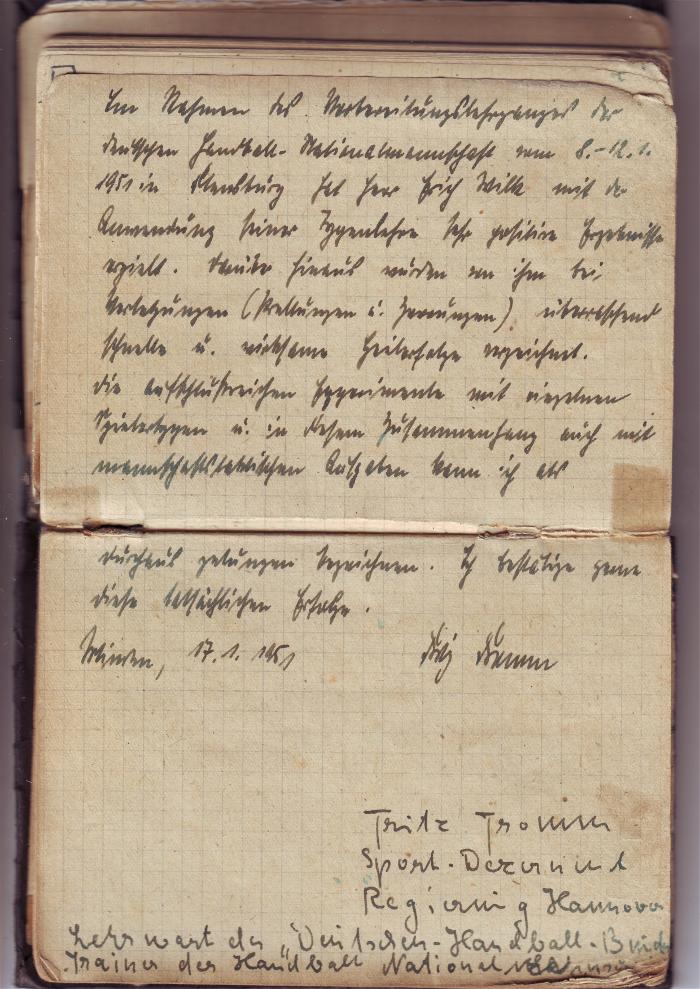 Im Rahmen des Vorbereitungslehrganges der
deutschen Handball-Nationalmannschaft vom 8.-12.1.
1951 in Flensburg hat Herr Erich Wilk mit der
Anwendung seiner Typenlehre sehr positive Ergebnisse
erzielt. Darüber hinaus wurden von ihm bei
Verletzungen (Prellungen u. Zerrungen) überraschend
schnelle u. wirksame Heilerfolge verzeichnet.
Die aufschlußreichen Experimente mit einzelnen
Spielertypen u. in diesem Zusammenhang auch mit
mannschaftstaktischen Aufgaben kann ich als
durchaus gelungen bezeichnen. Ich bestätige gerne
diese tatsächlichen Erfolge.
Minden, 17.1.1951 Fritz Fromm
Fritz Fromm
Sport-Dezernent
Regierung Hannover
Lehrwart des „Deutschen-Handball-Bund
Trainer der Handball National